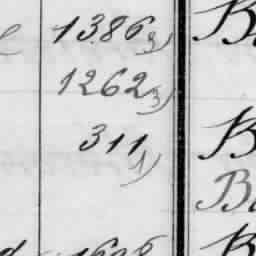 1386 3) B
1262 3)
311 1) B
B
1698 B